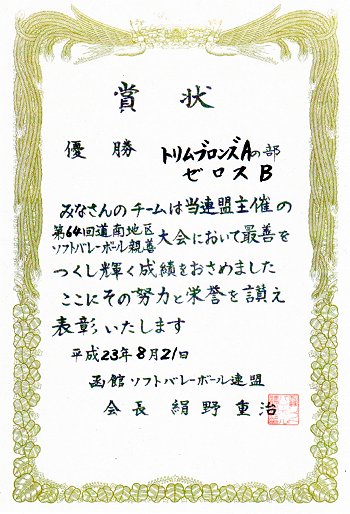 賞状
優勝 トリムブロンズAの部
ゼロスB
みなさんのチームは当連盟主催の
第64回道南地区
ソフトバレーボール親善
大会において最善を
つくし輝く成績をおさめました
ここにその努力と栄誉を讃え
表彰いたします
平成23年8月21日
函館ソフトバレーボール連盟
会長 絹野重治